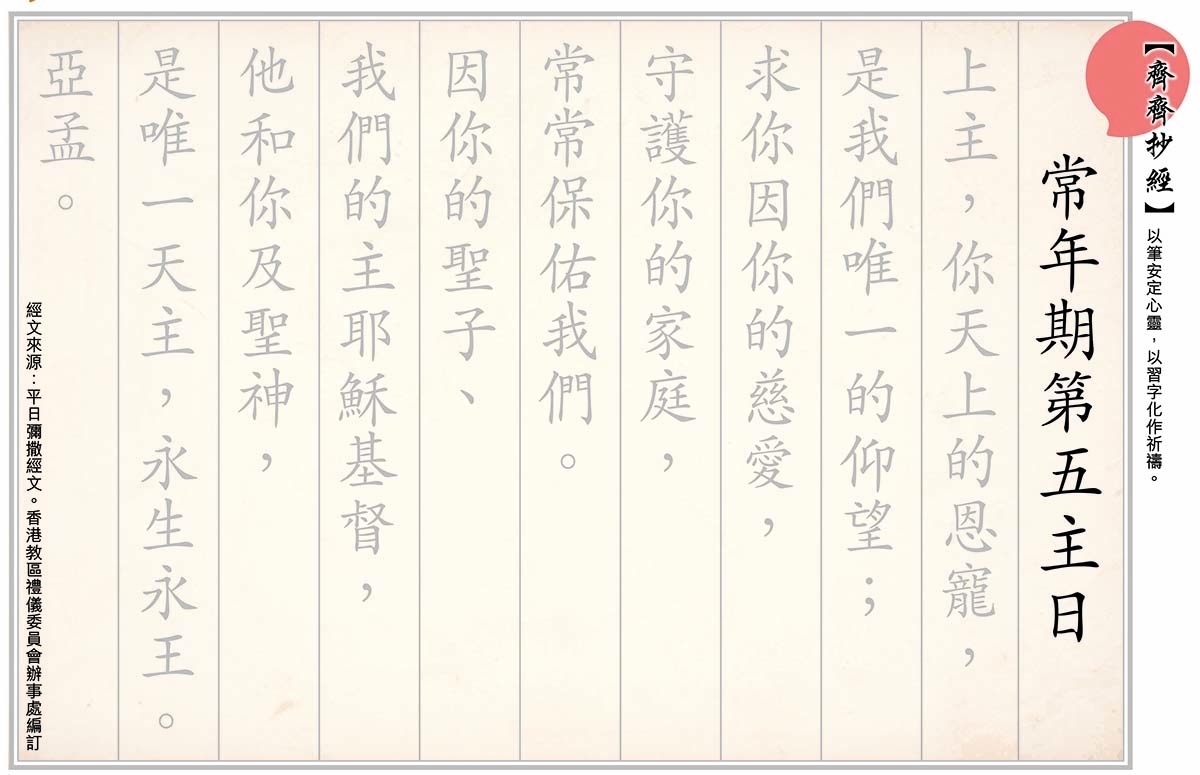 【齊齊抄經】以筆安定心靈，以習字化作祈禱。
常年期第五主日
上主，你天上的恩寵，
是我們唯一的仰望；
求你因你的慈愛，
守護你的家庭，
常常保佑我們。
因你的聖子、
我們的主耶穌基督，
他和你及聖神，
是唯一天主，永生永王。
亞孟。
經文來源：平日彌撒經文。香港教區禮儀委員會辦事處編訂